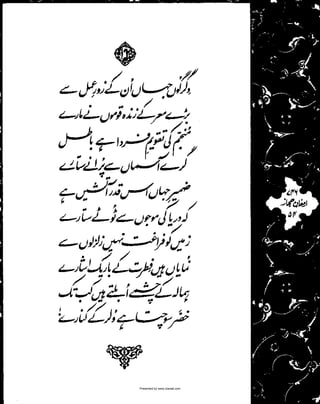 دگرگوں جہاں اُن کے زورِ عمل سے
بڑے معرکے زندہ قوموں نے مارے
منجّم کی تقویمِ فردا ہے باطل
گرے آسماں سے پُرانے ستارے
ضمیرِ جہاں اس قدر آتشیں ہے
کہ دریا کی موجوں سے ٹوٹے ستارے
زمیں کو فراغت نہیں زلزلوں سے
نمایاں ہیں فطرت کے باریک اشارے
ہمالہ کے چشمے اُبلتے ہیں کب تک
خضر سوچتا ہے وُلر کے کنارے
ارمغان حجاز
۵۴
Presented by www.ziaraat.com